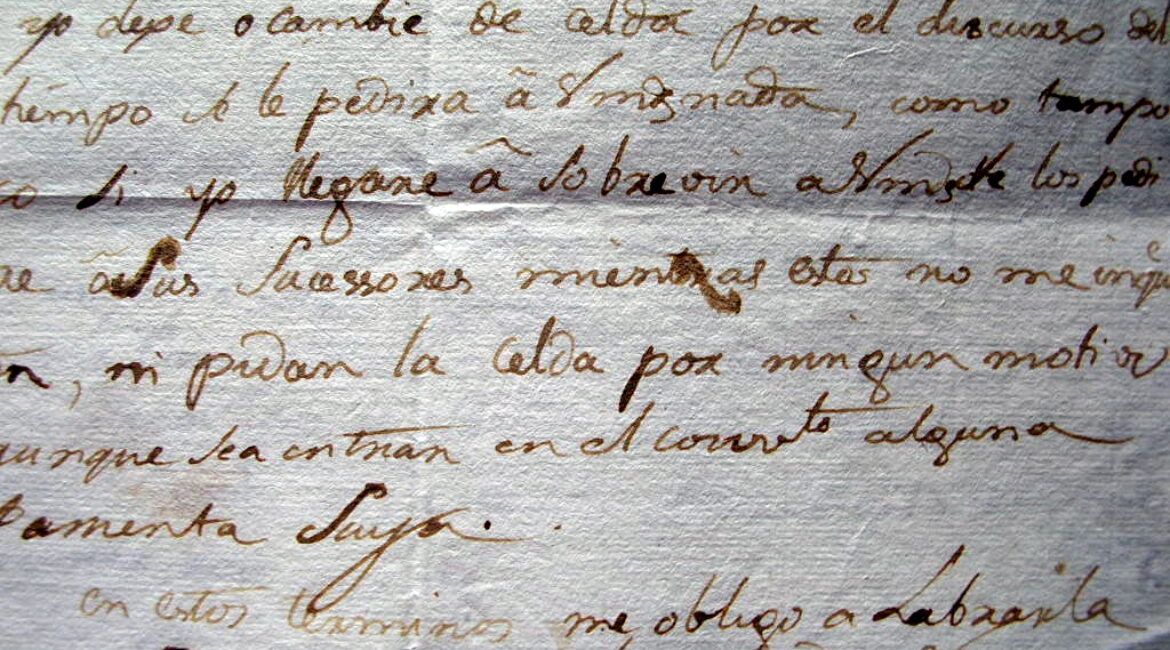 yo dexe o cambie de celda por el discurso del
tiempo se le pedira â Vmd nada, como tampo
co si yo llegare â sobrevir a Vmd los pedi
re â sus sucessores mientras estos no me inqe
an, ni pidan la celda por ningun motivo
aunque sea entrar en el convto alguna
parienta suya.
en estos terminos me obligo a Labrarla